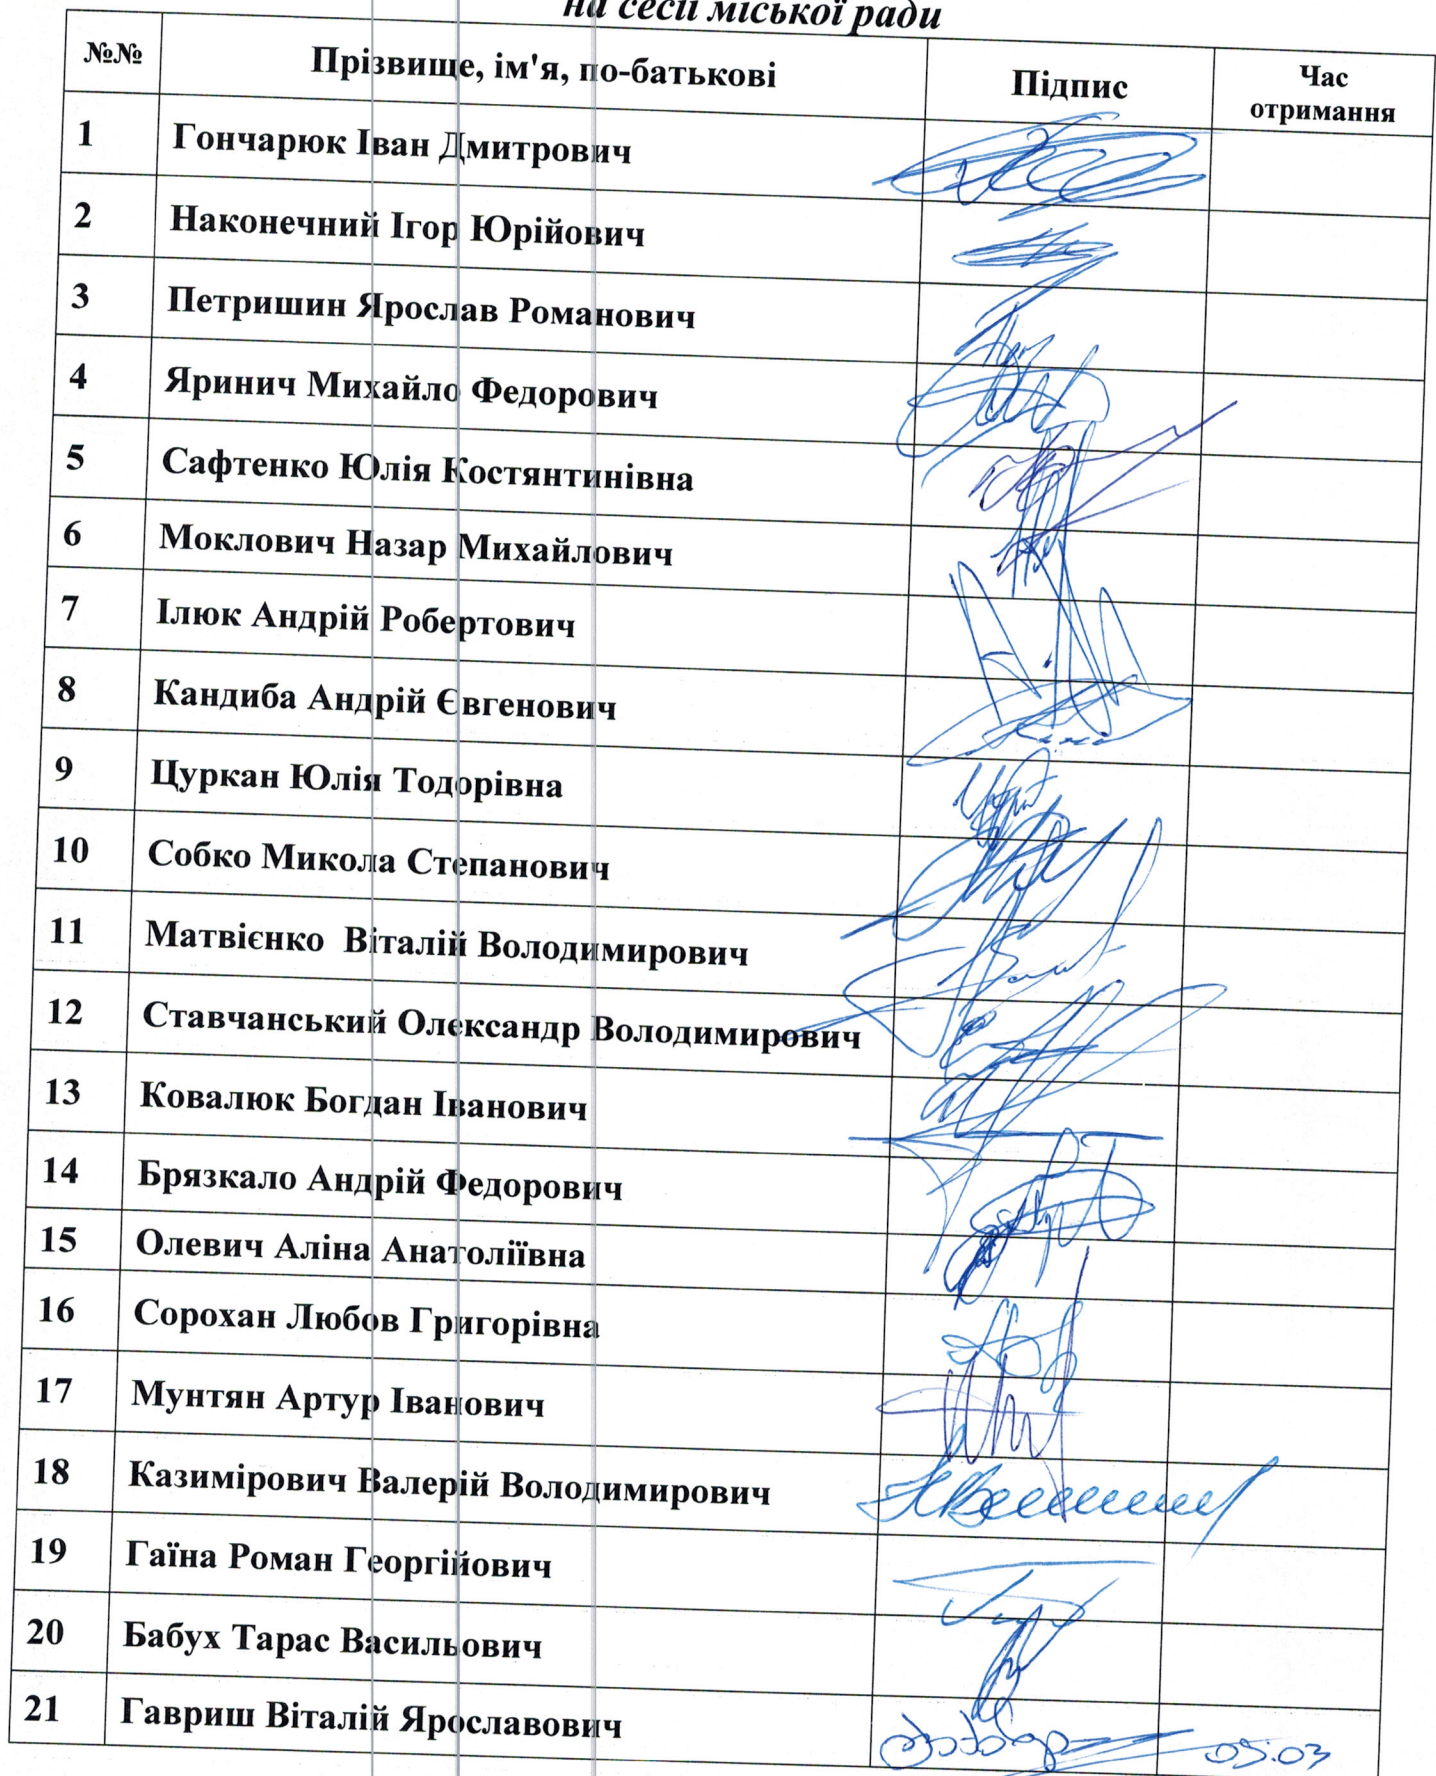 на сесії міської ради
№№ Прізвище, ім'я, по-батькові Підпис Час
отримання
1 Гончарюк Іван Дмитрович
2 Наконечний Ігор Юрійович
3 Петришин Ярослав Романович
4 Яринич Михайло Федорович
5 Сафтенко Юлія Костянтинівна
6 Моклович Назар Михайлович
7 Ілюк Андрій Робертович
8 Кандиба Андрій Євгенович
9 Цуркан Юлія Тодорівна
10 Собко Микола Степанович
11 Матвієнко Віталій Володимирович
12 Ставчанський Олександр Володимирович
13 Ковалюк Богдан Іванович
14 Брязкало Андрій Федорович
15 Олевич Аліна Анатоліївна
16 Сорохан Любов Григорівна
17 Мунтян Артур Іванович
18 Казимірович Валерій Володимирович
19 Гаїна Роман Георгійович
20 Бабух Тарас Васильович
21 Гавриш Віталій Ярославович 09:03